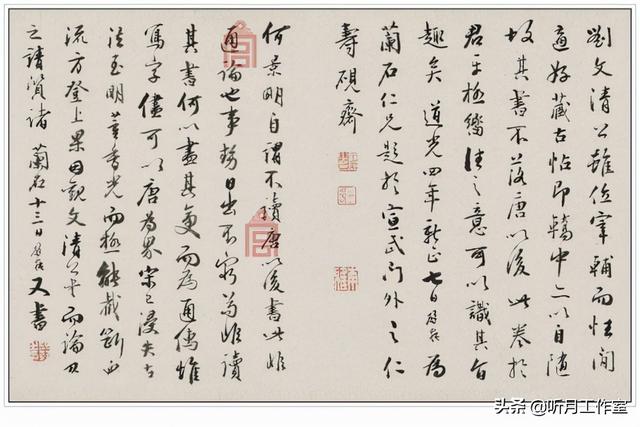 劉文清公雖位宰輔而性閒
適好藏古帖即轎中亦以自隨
故其書不落唐以後此卷於
君子極往之意可以識其旨
趣矣 道光四年新正七日 為
蘭石仁兄題於宣武門外之仁
壽硯齋
何景明自謂不讀唐以後書此非
通論也事勢日出不窮苟非讀
其書何以盡其變而為通儒惟
寫字儘可以唐為界宋已浸失古
法至明董香光而極能截斷
流方登上果因觀文清公而論及
之請質諸 蘭石 十三日 又書
头条 @听月工作室